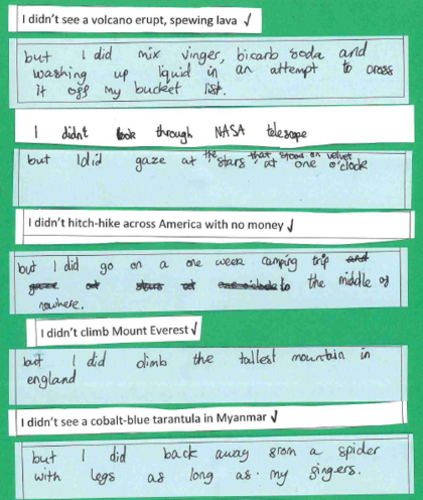 I didn't see a volcano erupt, spewing lava ✓
but I did mix vinger, bicarb soda and
washing up liquid in an attempt to cross
it off my bucket list.
I didn't look through NASA telescope
but I did gaze at the stars that stood on velvet at one o'clock
I didn't hitch-hike across America with no money ✓
but I did go on a one week camping trip
to the middle of
nowhere.
I didn't climb Mount Everest ✓
but I did climb the tallest mountain in
england
I didn't see a cobalt-blue tarantula in Myanmar ✓
but I did back away from a spider
with legs as long as my fingers.